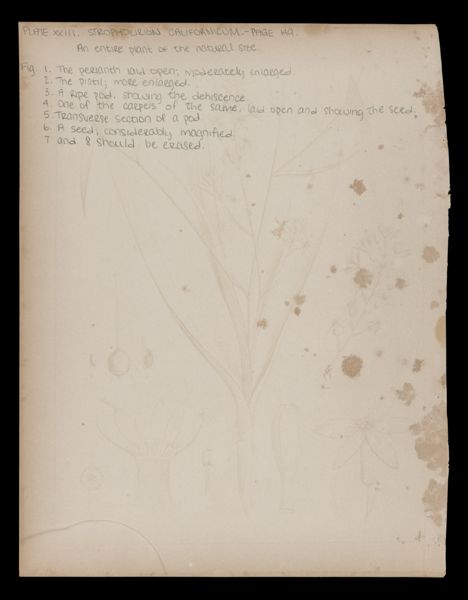 PLATE XXIII. STROPHOLIRION CALIFORNICUM. - PAGE 149.
An entire plant of the natural size.
Fig. 1. The perianth laid open; moderately enlarged.
2. The pistil; more enlarged.
3. A ripe pod, showing the dehiscence
4. One of the carpels of the same, laid open and showing the seed.
5. Transverse section of a pod
6. A seed, considerably magnified.
7 and 8 should be erased.